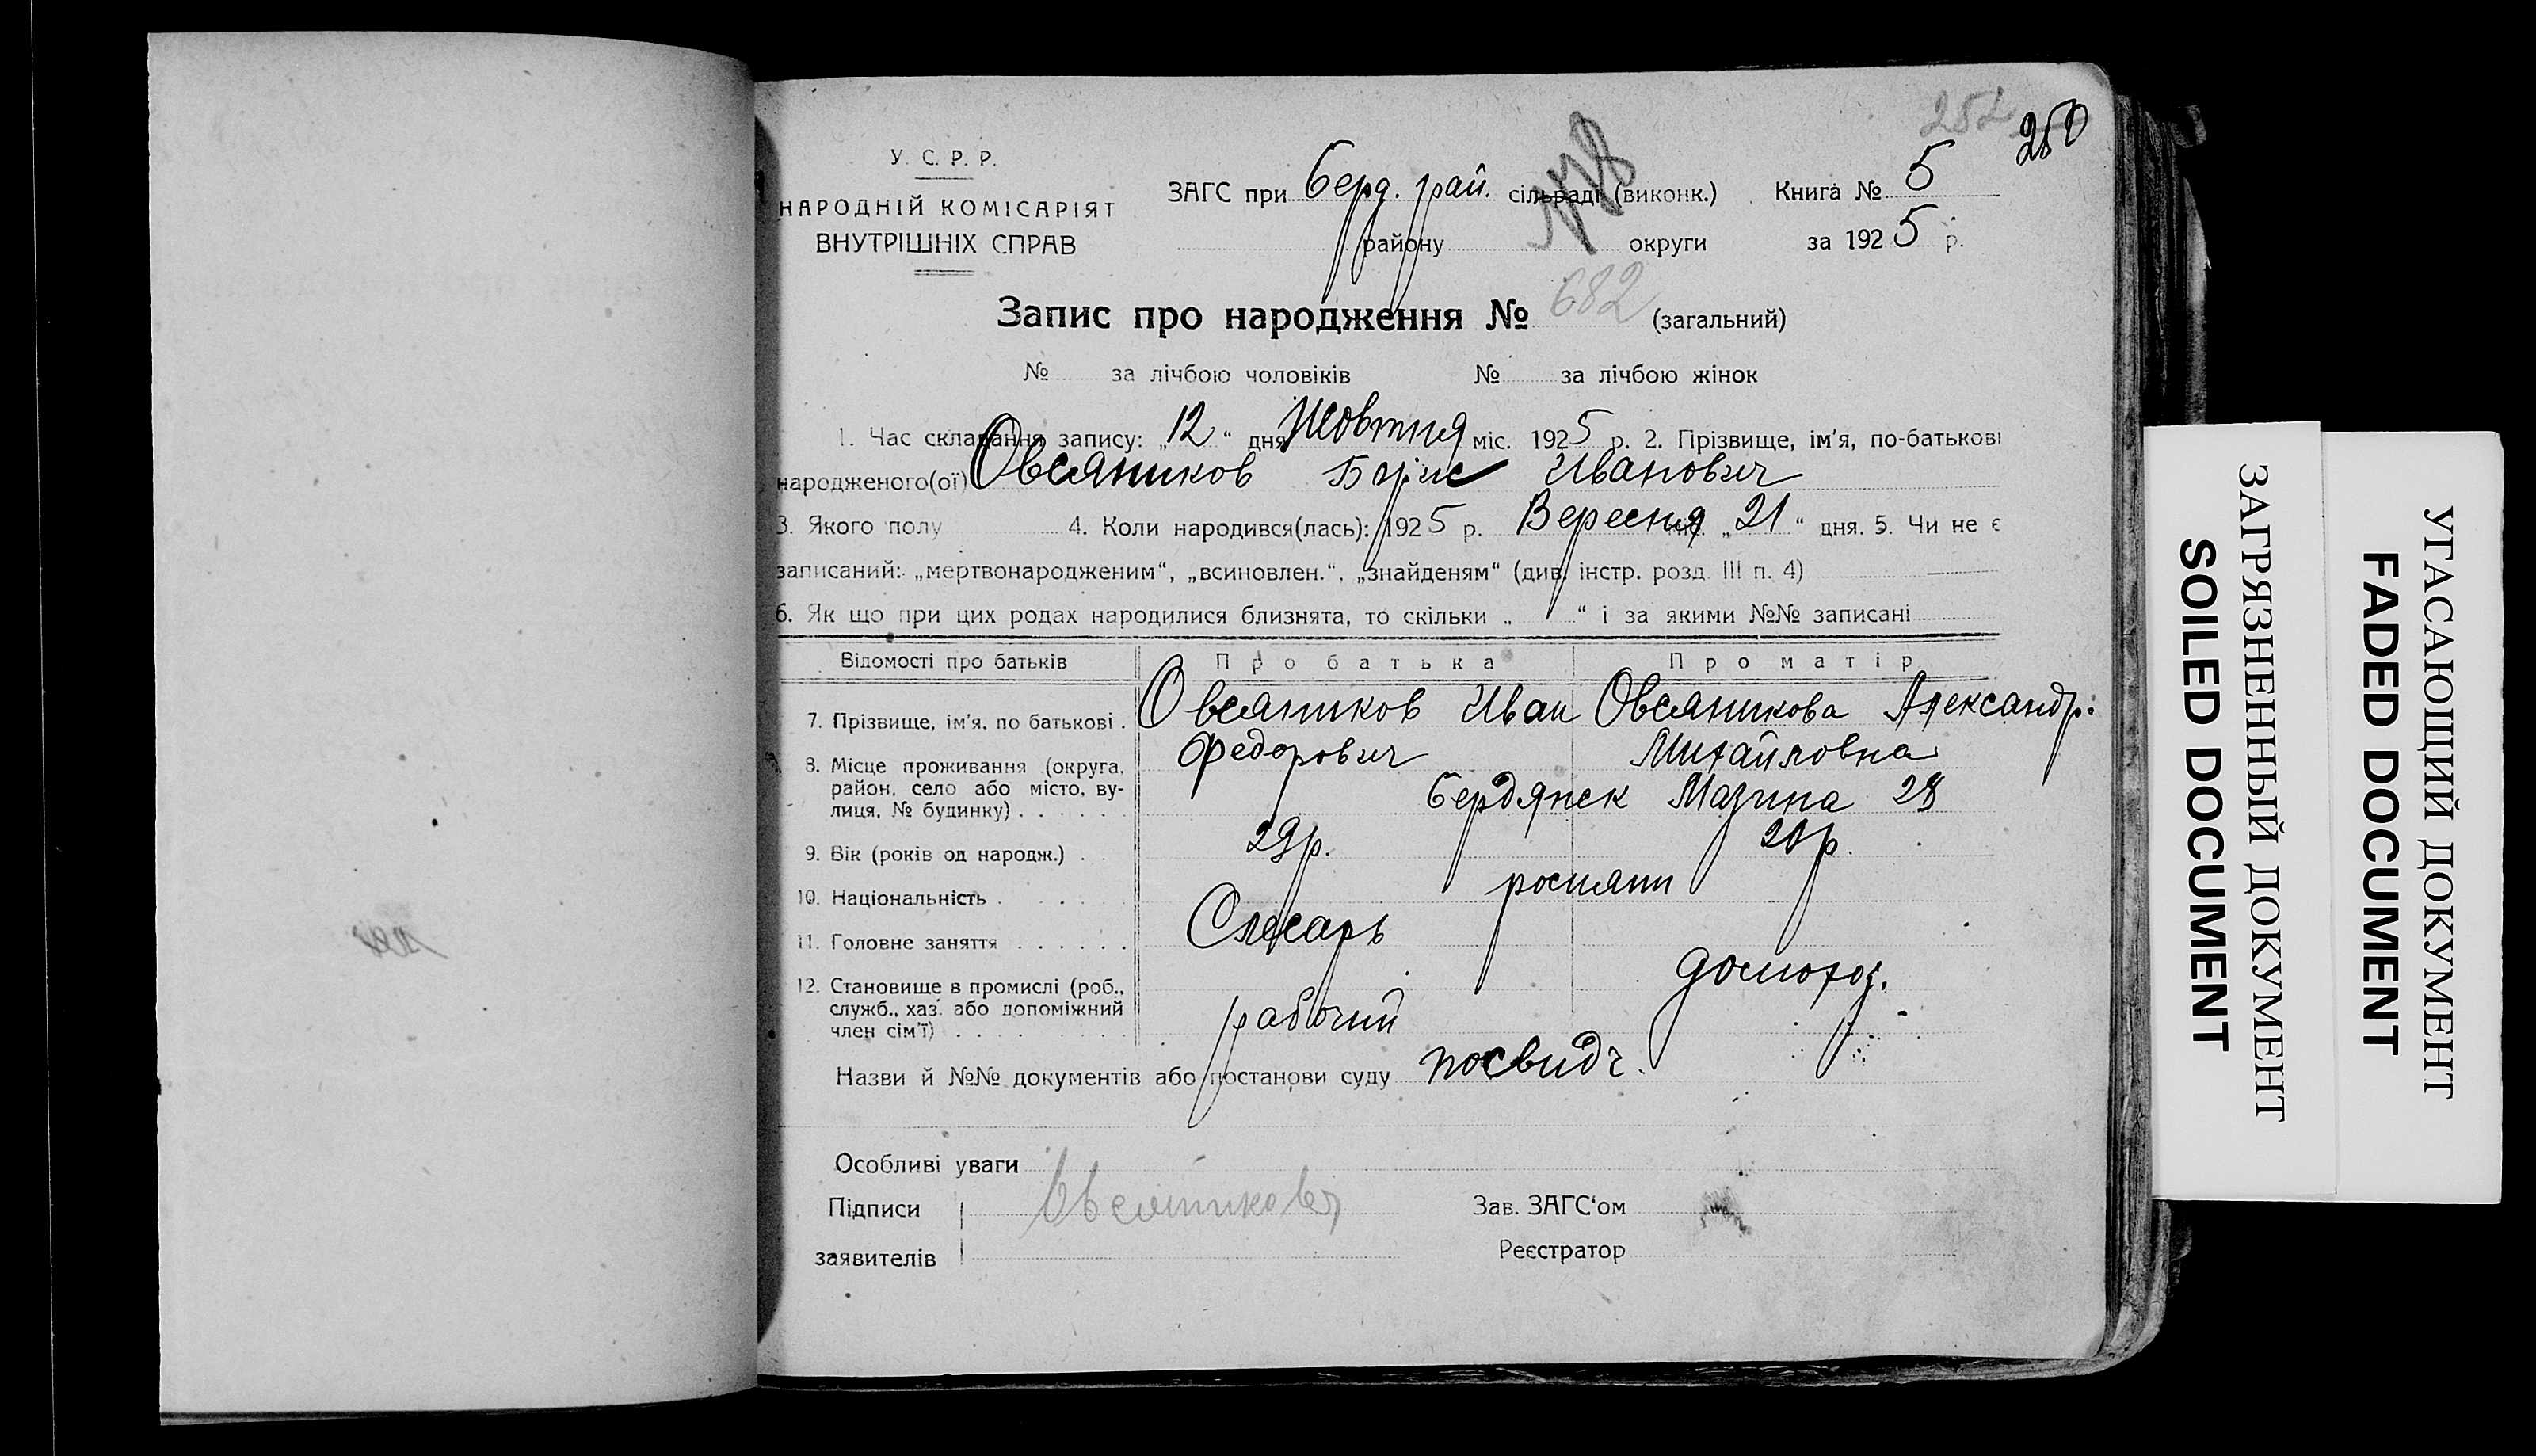 252 250
У. С. Р. Р.
НАРОДНІЙ КОМІСАРІЯТ
ВНУТРІШНІХ СПРАВ
ЗАГС при Берд. рай. сільраді (виконк.) Книга № 5
району округи за 1925 р.
Запис про народження № 682 (загальний)
№ за лічбою чоловіків № за лічбою жінок
1. Час складання запису: „12“ дня Жовтня міс. 1925 р. 2. Прізвище, ім'я, по-батькові
народженого(ої) Овсяников Борис Иванович
3. Якого полу 4. Коли народився(лась): 1925 р. Вересня міс. „21“ дня. 5. Чи не є
записаний: „мертвонародженим“, „всиновлен.“, „знайденям“ (див. інстр. розд. III п. 4)
6. Як що при цих родах народилися близнята, то скільки „ “ і за якими №№ записані
Відомості про батьків Про батька Про матір
7. Прізвище, ім'я, по батькові . Овсяников Иван Федорович Овсяникова Александр: Михайловна
8. Місце проживання (округа,
район, село або місто, ву-
лиця, № будинку) . . . . . . Бердянск Мазина 28
9. Вік (років од народж.) . . 29р. р.
10. Національність . . . . . росияни
11. Головне заняття . . . . . . Слесарь домохоз.
12. Становище в промислі (роб.,
служб., хаз. або допоміжний
член сім'ї) . . . . . . . . . рабочий
Назви й №№ документів або постанови суду посвидч.
Особливі уваги
Підписи Овсяникова Зав. ЗАГС'ом
заявителів Реєстратор
ЗАГРЯЗНЕННЫЙ ДОКУМЕНТ
SOILED DOCUMENT
УГАСАЮЩИЙ ДОКУМЕНТ
FADED DOCUMENT